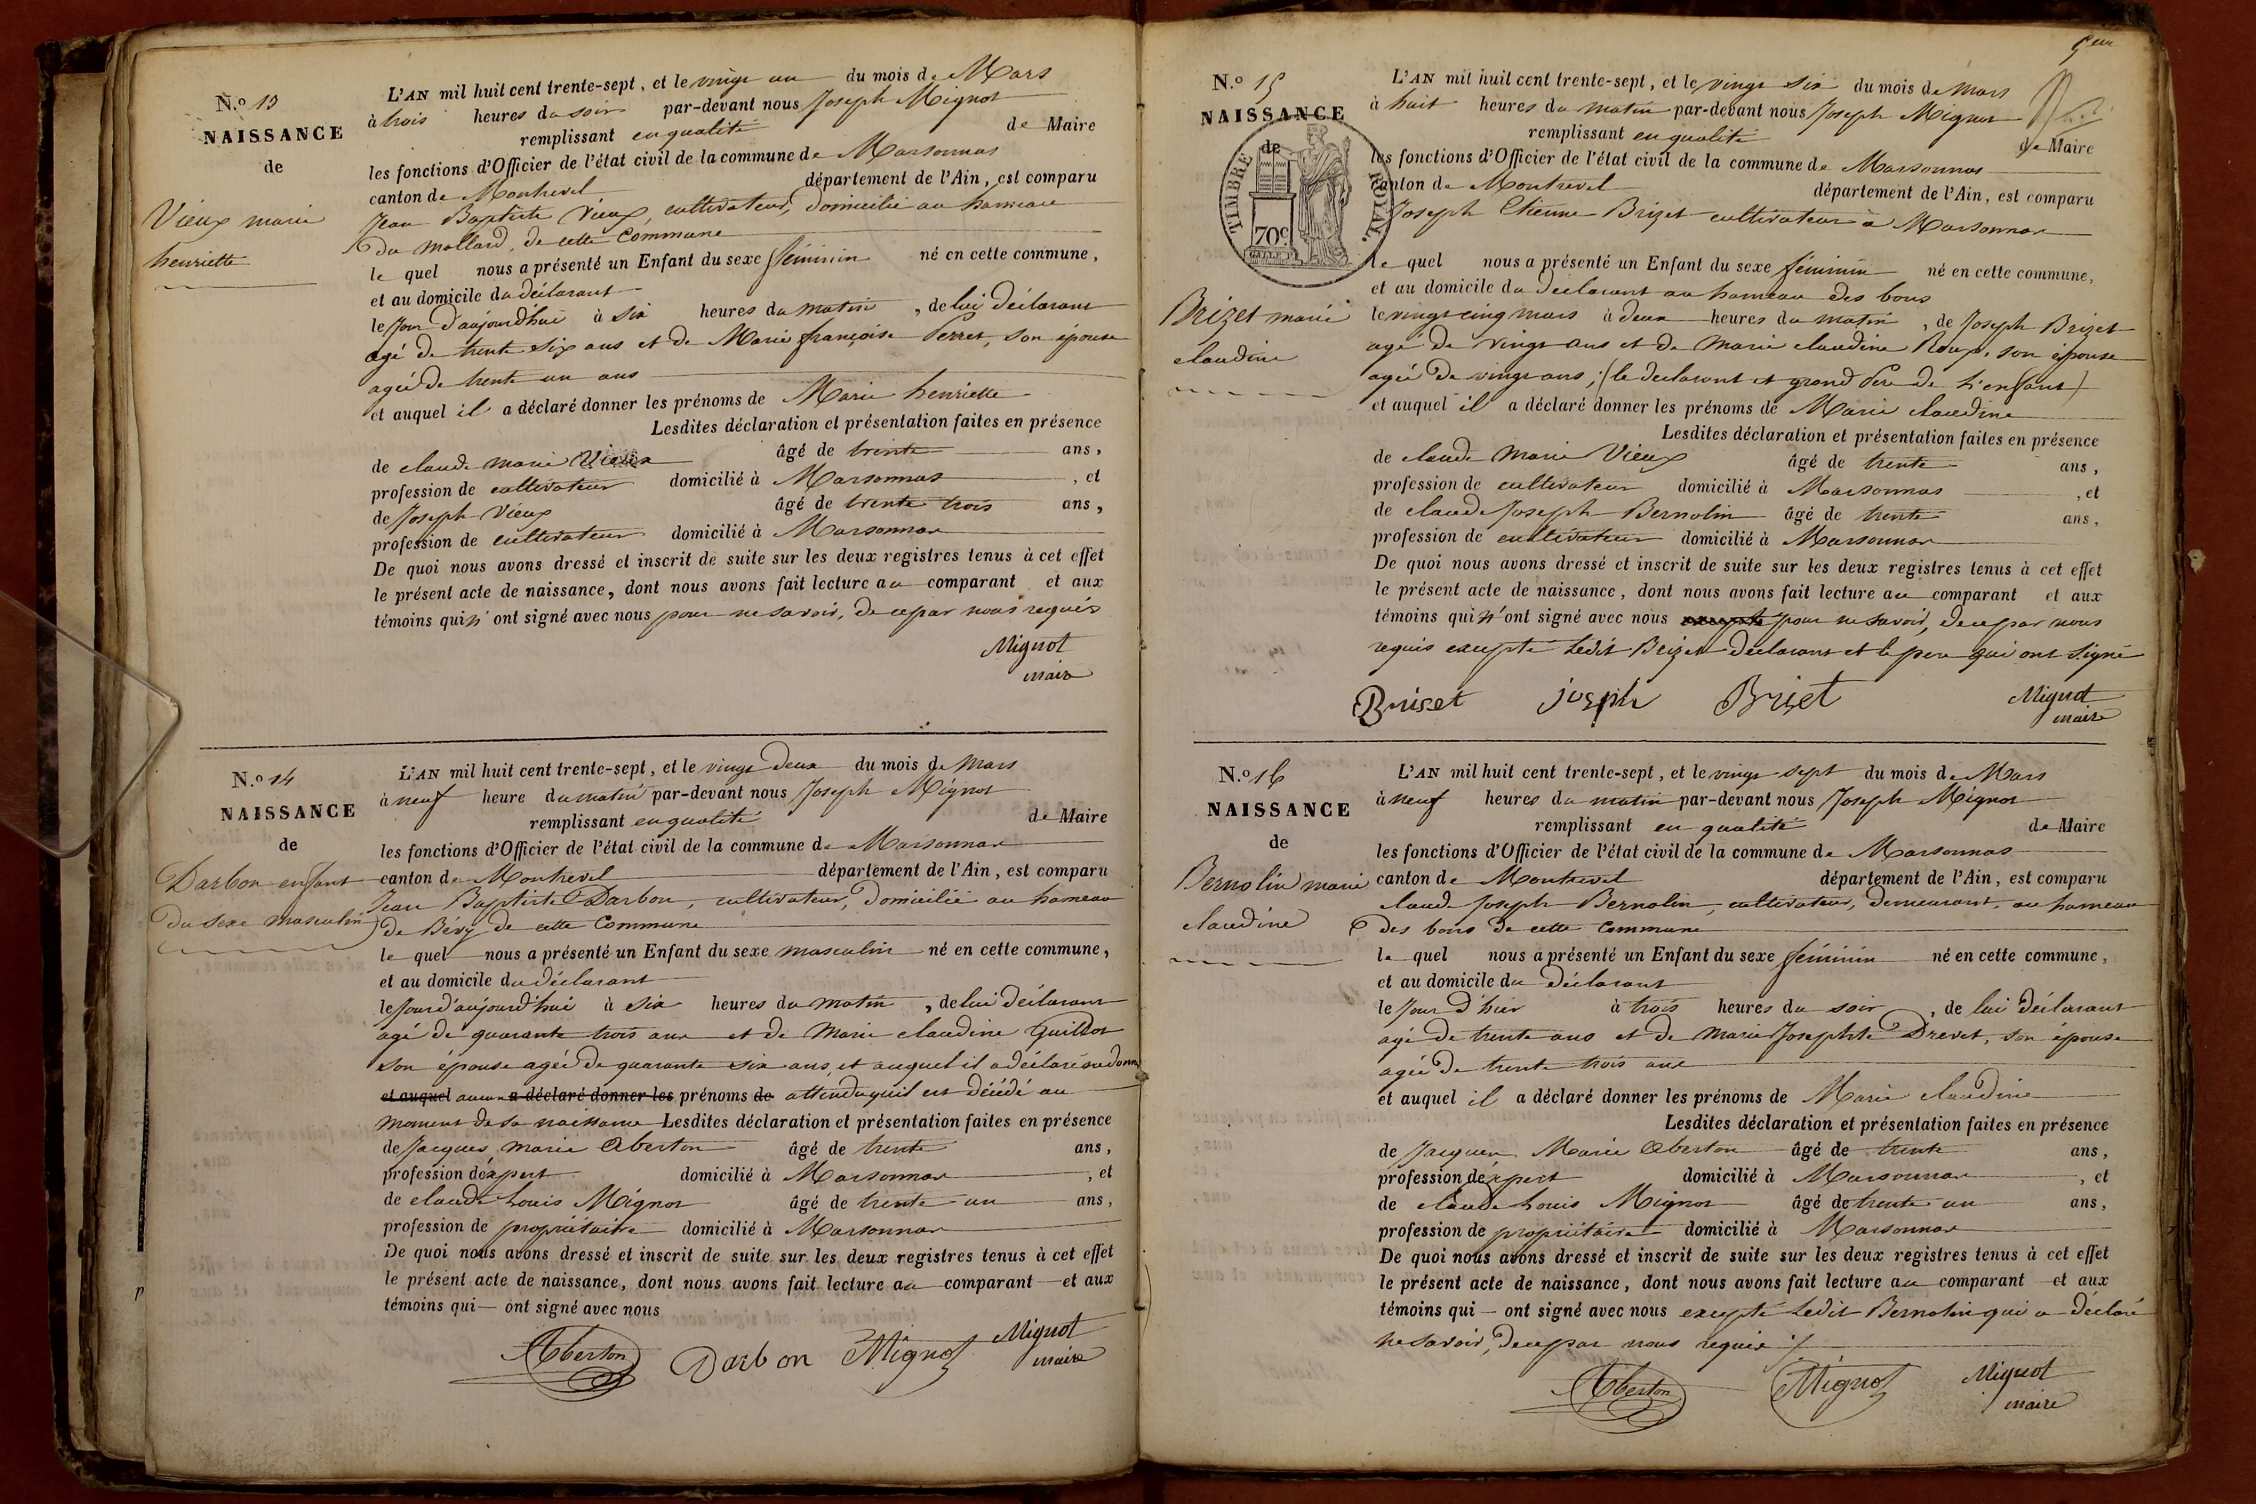 N.o 13
NAISSANCE
de
Vieux marie
henriette
L'AN mil huit cent trente-sept, et le vingt un du mois de Mars
à trois heures du soir par-devant nous Joseph Mignot
remplissant en qualité de Maire
les fonctions d'Officier de l'état civil de la commune de Marsonnas
canton de Montrevel département de l'Ain, est comparu
Jean Baptiste Vieux, cultivateur, domicilié au hameau
du Mollard, de cette Commune
le quel nous a présenté un Enfant du sexe féminin né en cette commune,
et au domicile du déclarant
le jour d'aujourdhui à six heures du matin, de lui déclarant
agé de trente six ans et de Marie françoise Perret, son épouse
agée de trente un ans
et auquel il a déclaré donner les prénoms de Marie henriette
Lesdites déclaration et présentation faites en présence
de claude marie Vieux âgé de trente ans,
profession de cultivateur domicilié à Marsonnas, et
de Joseph Vieux âgé de trente trois ans,
profession de cultivateur domicilié à Marsonnas
De quoi nous avons dressé et inscrit de suite sur les deux registres tenus à cet effet
le présent acte de naissance, dont nous avons fait lecture au comparant et aux
témoins qui n'ont signé avec nous pour ne savoir, de ce par nous requis
Mignot
maire
N.o 14
NAISSANCE
de
Darbon enfant
du sexe masculin
L'AN mil huit cent trente-sept, et le vingt deux du mois de Mars
à neuf heure du matin par-devant nous Joseph Mignot
remplissant en qualité de Maire
les fonctions d'Officier de l'état civil de la commune de Marsonnas
canton de Montrevel département de l'Ain, est comparu
Jean Baptiste Darbon, cultivateur, domicilié au hameau
de Bévy de cette Commune
le quel nous a présenté un Enfant du sexe masculin né en cette commune,
et au domicile du déclarant
le jour d'aujourd'hui à six heures du matin, de lui déclarant
agé de quarante trois ans et de Marie claudine Guillot
son épouse agée de quarante six ans, et auquel il a déclaré ne donner
et auquel aucun a déclaré donner les prénoms de attendu qu'il est décédé au
moment de sa naissance Lesdites déclaration et présentation faites en présence
de Jacques marie Aberton âgé de trente ans,
profession d'expert domicilié à Marsonnas, et
de claude Louis Mignot âgé de trente un ans,
profession de propriétaire domicilié à Marsonnas
De quoi nous avons dressé et inscrit de suite sur les deux registres tenus à cet effet
le présent acte de naissance, dont nous avons fait lecture au comparant et aux
témoins qui ont signé avec nous
Aberton Darbon Mignot Mignot
maire
N.o 15
NAISSANCE
de
TIMBRE ROYAL.
70c
Brizet marie
claudine
L'AN mil huit cent trente-sept, et le vingt six du mois de Mars
à huit heures du matin par-devant nous Joseph Mignot
remplissant en qualité de Maire
les fonctions d'Officier de l'état civil de la commune de Marsonnas
canton de Montrevel département de l'Ain, est comparu
Joseph Etienne Brizet cultivateur à Marsonnas
le quel nous a présenté un Enfant du sexe féminin né en cette commune,
et au domicile du declarant au hameau des bons
le vingt cinq mars à deux heures du matin, de Joseph Brizet
agé de vingt ans et de Marie claudine Roux, son épouse
agée de vingt ans; (le declarant est grand Père de l'enfant)
et auquel il a déclaré donner les prénoms de Marie claudine
Lesdites déclaration et présentation faites en présence
de claude Marie Vieux âgé de trente ans,
profession de cultivateur domicilié à Marsonnas, et
de claude Joseph Bernolin âgé de trente ans,
profession de cultivateur domicilié à Marsonnas
De quoi nous avons dressé et inscrit de suite sur les deux registres tenus à cet effet
le présent acte de naissance, dont nous avons fait lecture au comparant et aux
témoins qui n'ont signé avec nous pour ne savoir, de ce par nous
requis excepté Ledit Brizet déclarant et le père qui ont signé
Briset joseph Briset Mignot
maire
N.o 16
NAISSANCE
de
Bernolin marie
claudine
L'AN mil huit cent trente-sept, et le vingt sept du mois de Mars
à neuf heures du matin par-devant nous Joseph Mignot
remplissant en qualité de Maire
les fonctions d'Officier de l'état civil de la commune de Marsonnas
canton de Montrevel département de l'Ain, est comparu
claude Joseph Bernolin, cultivateur, demeurant, au hameau
des bons de cette Commune
le quel nous a présenté un Enfant du sexe féminin né en cette commune,
et au domicile du déclarant
le jour d'hier à trois heures du soir, de lui déclarant
agé de trente ans et de Marie Josephte Drevet, son épouse
agée de trente trois ans
et auquel il a déclaré donner les prénoms de Marie claudine
Lesdites déclaration et présentation faites en présence
de Jacques Marie Aberton âgé de trente ans,
profession d'expert domicilié à Marsonnas, et
de claude Louis Mignot âgé de trente un ans,
profession de propriétaire domicilié à Marsonnas
De quoi nous avons dressé et inscrit de suite sur les deux registres tenus à cet effet
le présent acte de naissance, dont nous avons fait lecture au comparant et aux
témoins qui ont signé avec nous excepté Ledit Bernolin qui a déclaré
ne savoir, de ce par nous requis
Aberton Mignot Mignot
maire